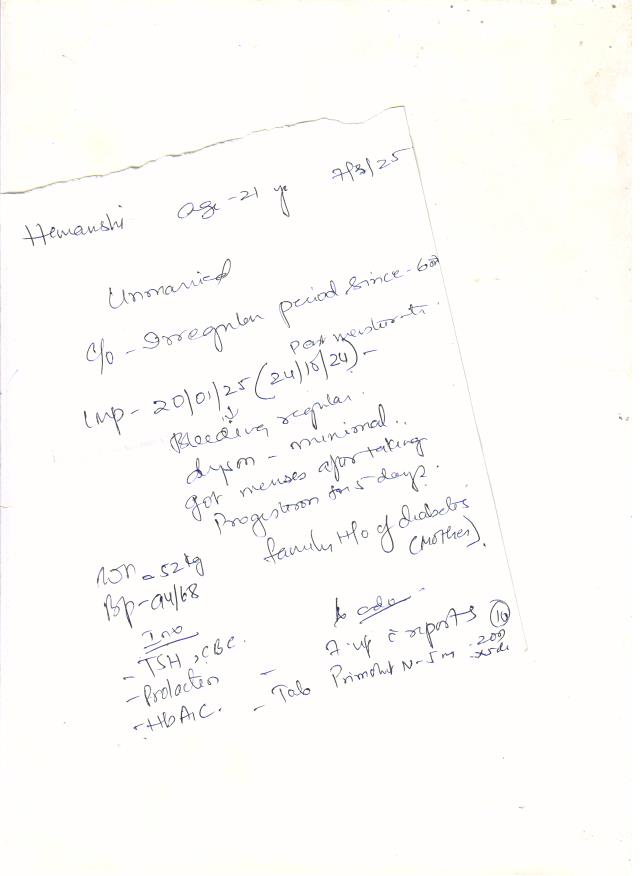 Hemanshi age - 21 yr 7/3/25
Unmarried
c/o - Irregular period since - 6
Past menstrati
LMP - 20/01/25 (24/10/24) -
Bleeding regular.
dysm - minimal.
got menses after taking
Progestron for 5 days.
Wt = 52 kg family H/o of diabetes
BP - 94/68 (Mother).
Inv adv -
- TSH, CBC. - F. up c reports
- Prolacten - Tab Primolut N - 5 m (10)
- HbA1C.